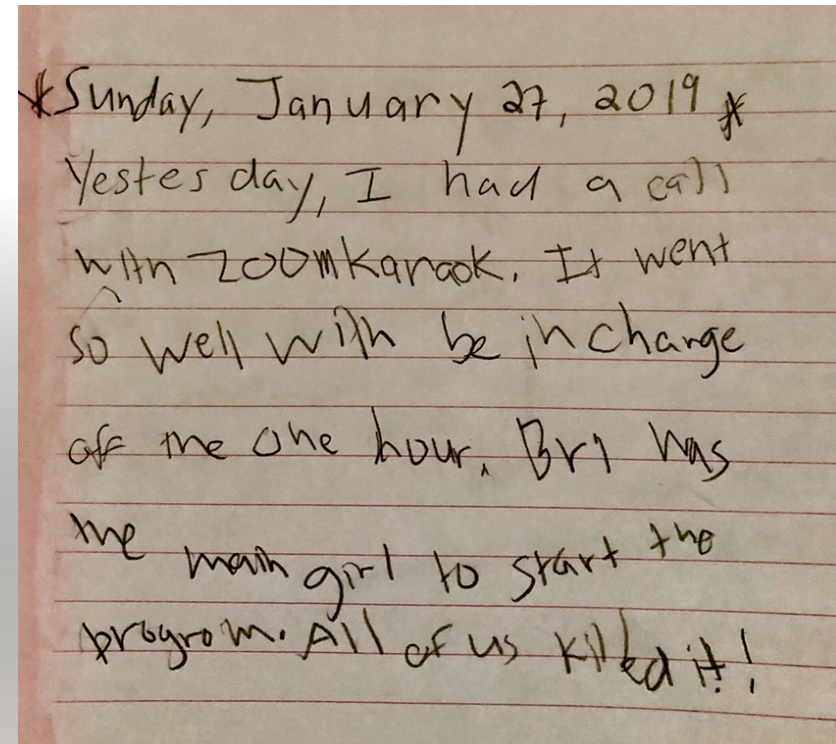 *Sunday, January 27, 2019*
Yestesday, I had a call
with zoomkaraok. It went
so well with be in change
off the one hour. Bri was
the main girl to start the
program. All of us killed it!